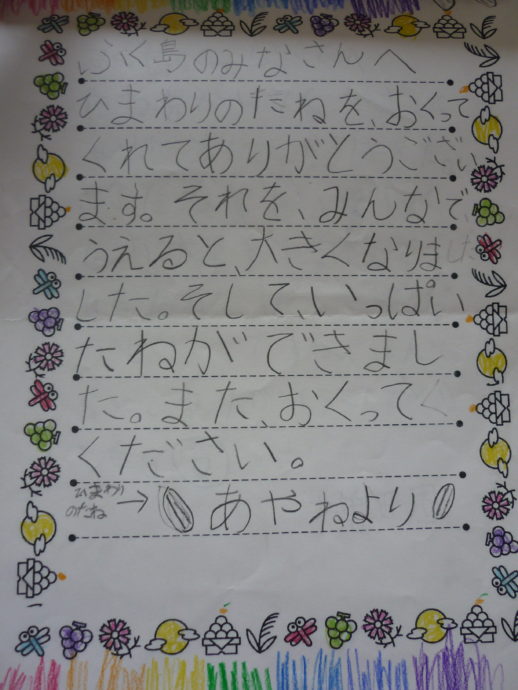 ふく島のみなさんへ
ひまわりのたねを、おくって
くれてありがとうござい
ます。それを、みんなで
うえると、大きくなりま
した。そして、いっぱい
たねができまし
た。また、おくって
ください。
ひまわり
のたね
→ あやねより